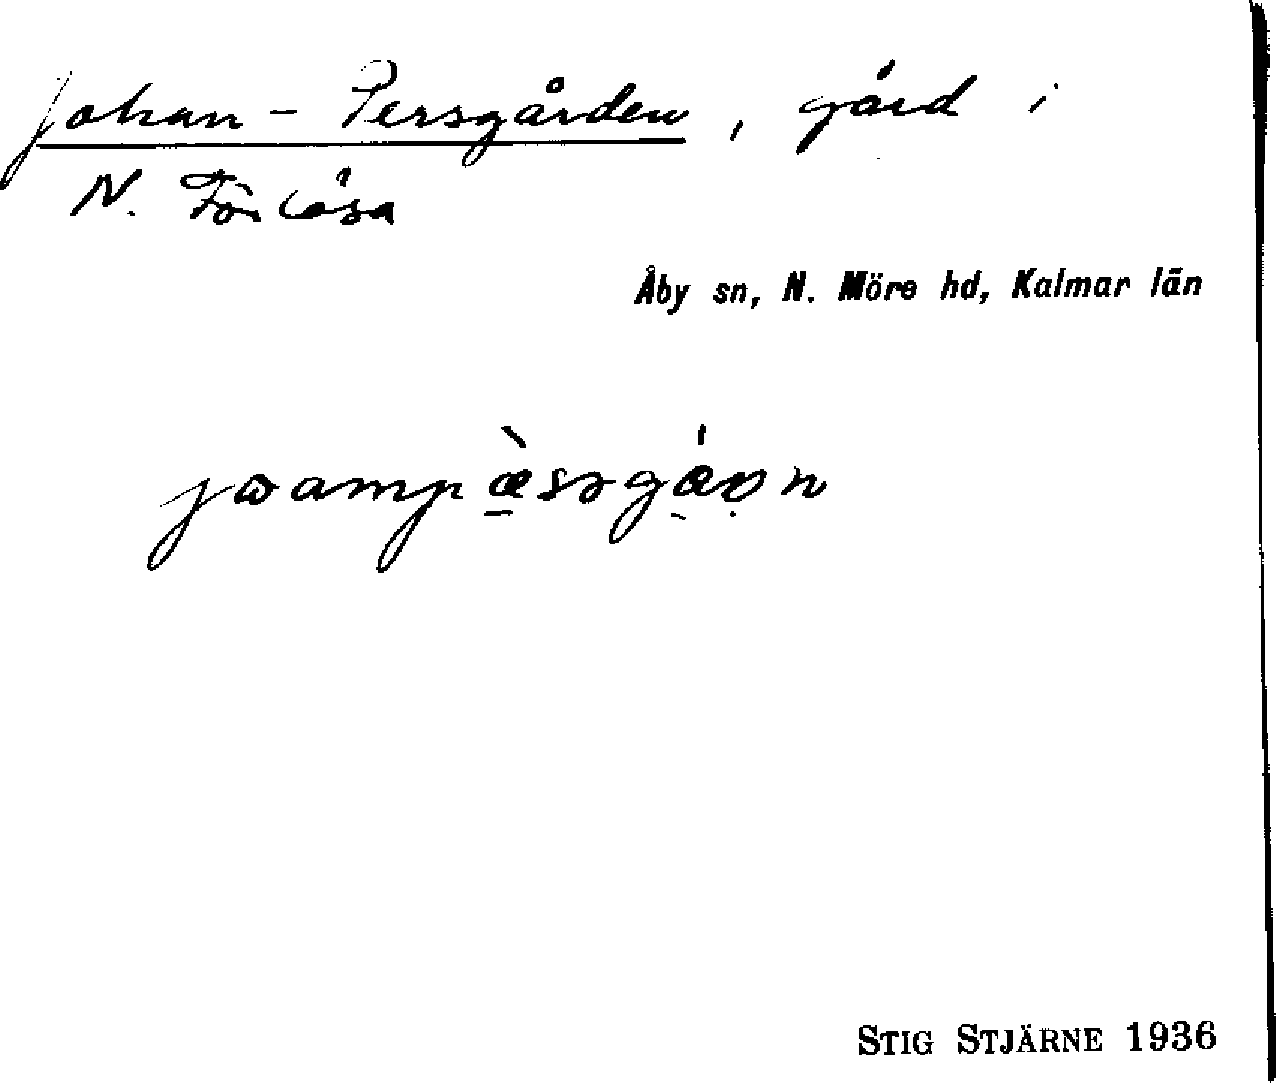 Johan-Persgården, gård i
N. Förlösa
Åby sn, N. Möre hd, Kalmar län
STIG STJÄRNE 1936